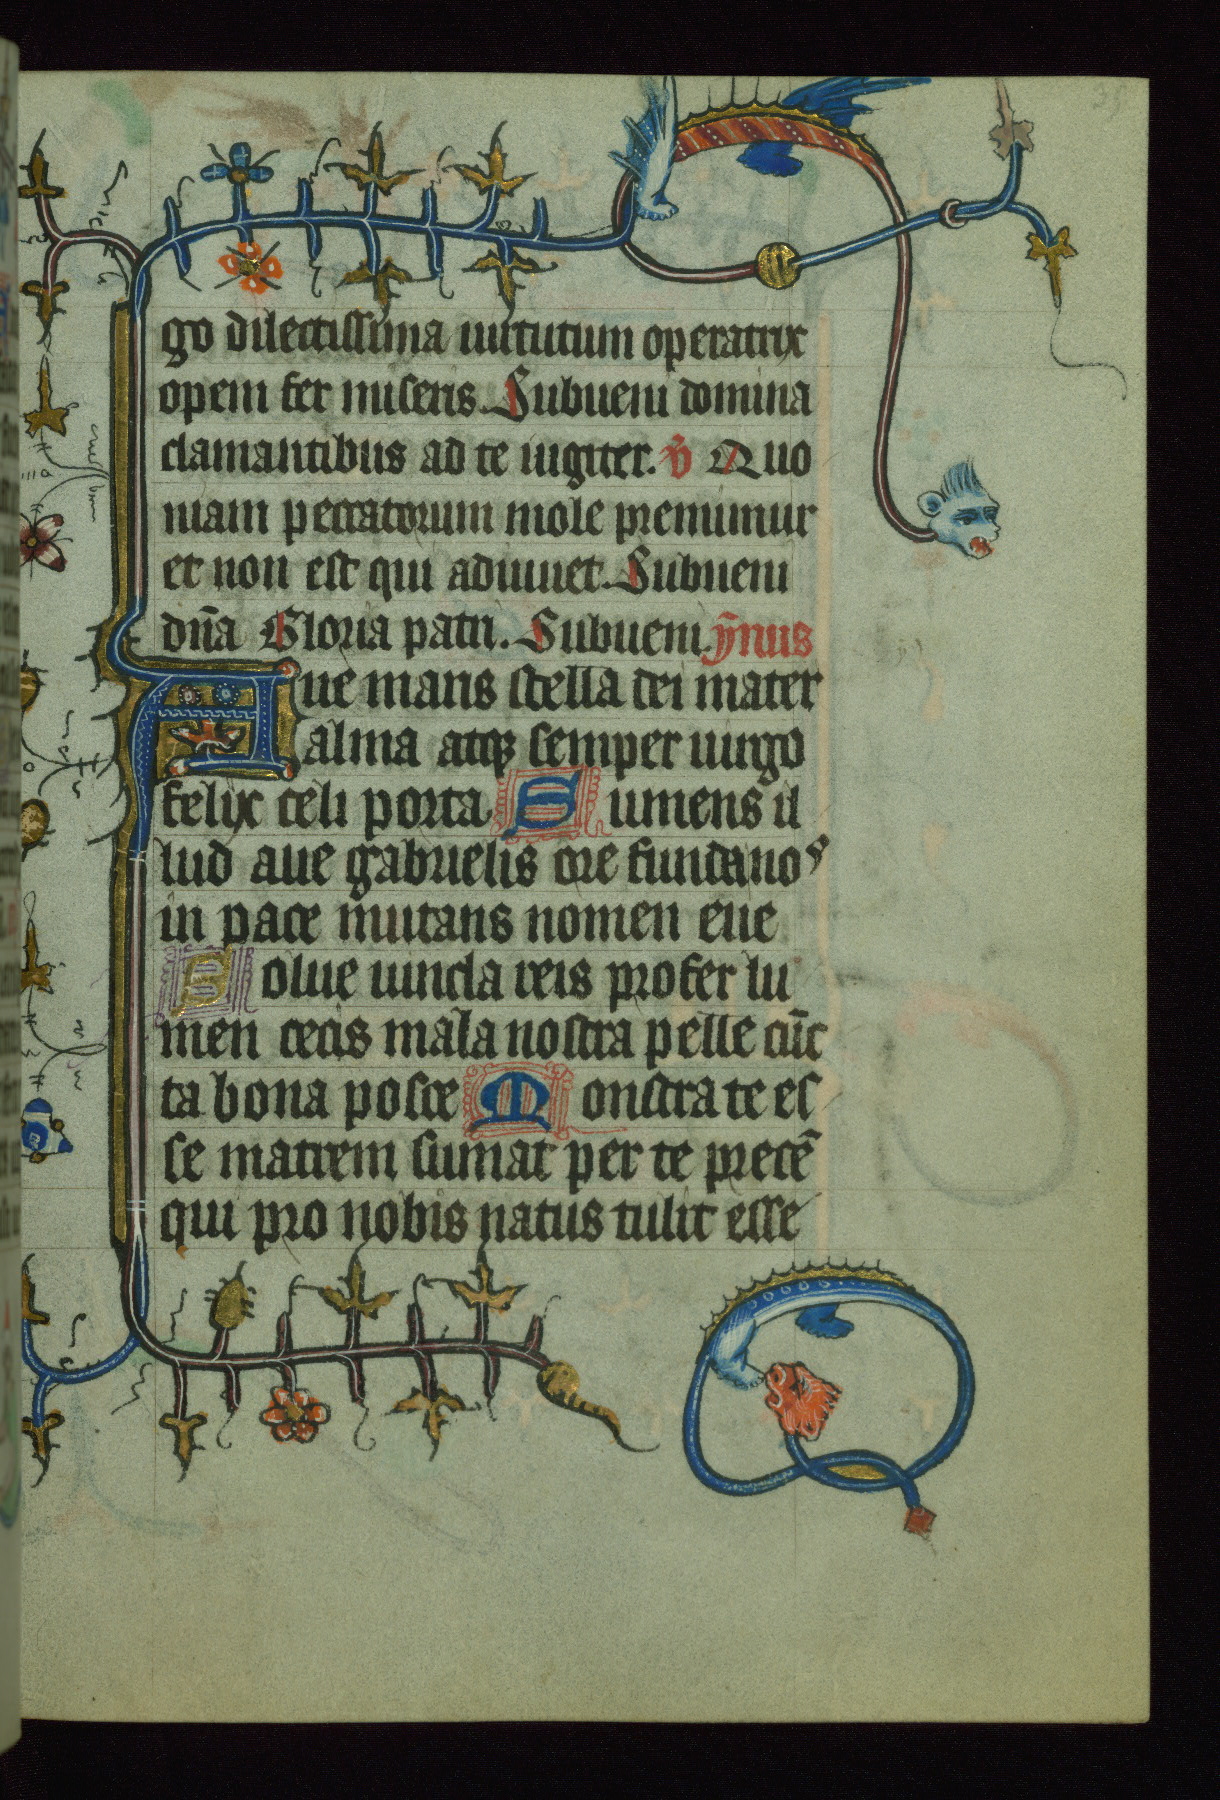 go dilectissima uirtutum operatrix
opem fer miseris. Subueni domina
clamantibus ad te iugiter. v̄ Quo
niam peccatorum mole premimur
et non est qui adiuuet. Subueni
dn̄a Gloria patri. Subueni. ȳnus
Aue maris stella dei mater
alma atqꝫ semper uirgo
felix celi porta. Sumens il
lud aue gabrielis ore funda nos
in pace mutans nomen eue
Solue uincla reis profer lu
men cecis mala nostra pelle cūc
ta bona posce Monstra te es
se matrem sumat per te precē
qui pro nobis natus tulit esse